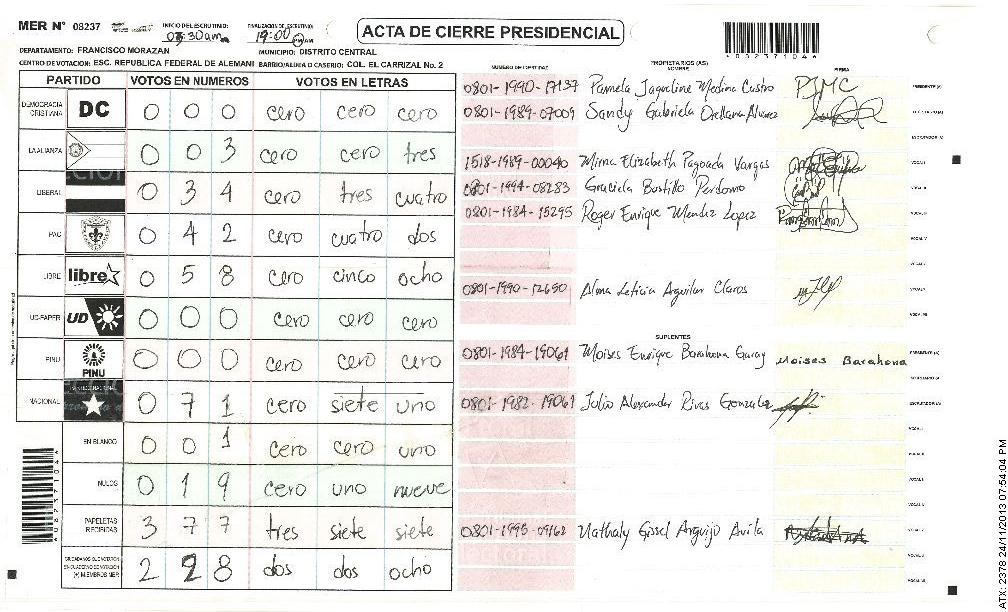 MER N° 08237 INICIO DEL ESCRUTINIO: FINALIZACION DEL ESCRUTINIO: 19:00 PM ACTA DE CIERRE PRESIDENCIAL
*08237104*
DEPARTAMENTO: FRANCISCO MORAZAN MUNICIPIO: DISTRITO CENTRAL
CENTRO DE VOTACION: ESC. REPUBLICA FEDERAL DE ALEMANI BARRIO/ALDEA O CASERIO: COL. EL CARRIZAL No. 2
PARTIDO VOTOS EN NUMEROS VOTOS EN LETRAS
DEMOCRACIA CRISTIANA DC 0 0 0 cero cero cero
LA ALIANZA 0 0 3 cero cero tres
LIBERAL 0 3 4 cero tres cuatro
PAC 0 4 2 cero cuatro dos
LIBRE libre 0 5 8 cero cinco ocho
UD-FAPER UD 0 0 0 cero cero cero
PINU PINU 0 0 0 cero cero cero
NACIONAL 0 7 1 cero siete uno
EN BLANCO 0 0 1 cero cero uno
NULOS 0 1 9 cero uno nueve
PAPELETAS RECIBIDAS 3 7 7 tres siete siete
(+) MIEMBROS MER 2 2 8 dos dos ocho
*08237104*
NUMERO DE IDENTIDAD PROPIETARIOS (AS) NOMBRE FIRMA
0801-1990-17137 Pamela Jaqueline Medina Castro PJMC PRESIDENTE (A)
0801-1989-07009 Sandy Gabriela Orellana Alvarez
1518-1989-00040 Mirna Elizabeth Pagoada Vargas
0801-1994-08283 Graciela Bustillo Perdomo
0801-1984-15295 Roger Enrique Mendez Lopez
0801-1990-12690 Alma Leticia Arguilar Claros
SUPLENTES
0801-1984-19061 Moises Enrique Barahona Garay Moises Barahona PRESIDENTE (A)
0801-1982-19061 Julio Alexander Rivas Gonzalez
0801-1995-09162 Nathaly Gissel Arguijo Avila
ATX: 2378 24/11/2013 07:54:04 PM